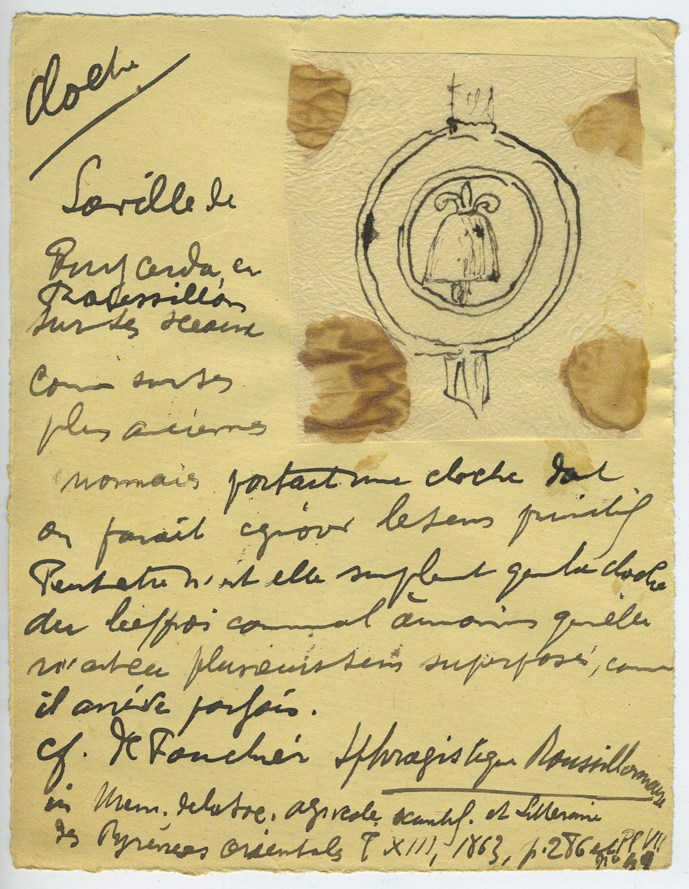 cloche
La ville de
Puycerda en
Roussillon
sur ses sceaux
comme sur ses
plus anciennes
monnaies portait une cloche dont
on parait ignorer le sens primitif
Peut etre n'est elle simplement que la cloche
du beffroi communal à moins qu'elle
n'ait eu plusieurs sens superposés, comme
il arrive parfois.
cf. de Sphragistique Roussillonnaise
in Mem. de la Soc. agricole, scientif. et Litteraire
des Pyrénées orientales T XIII, 1863, p. 286 et Pl VII